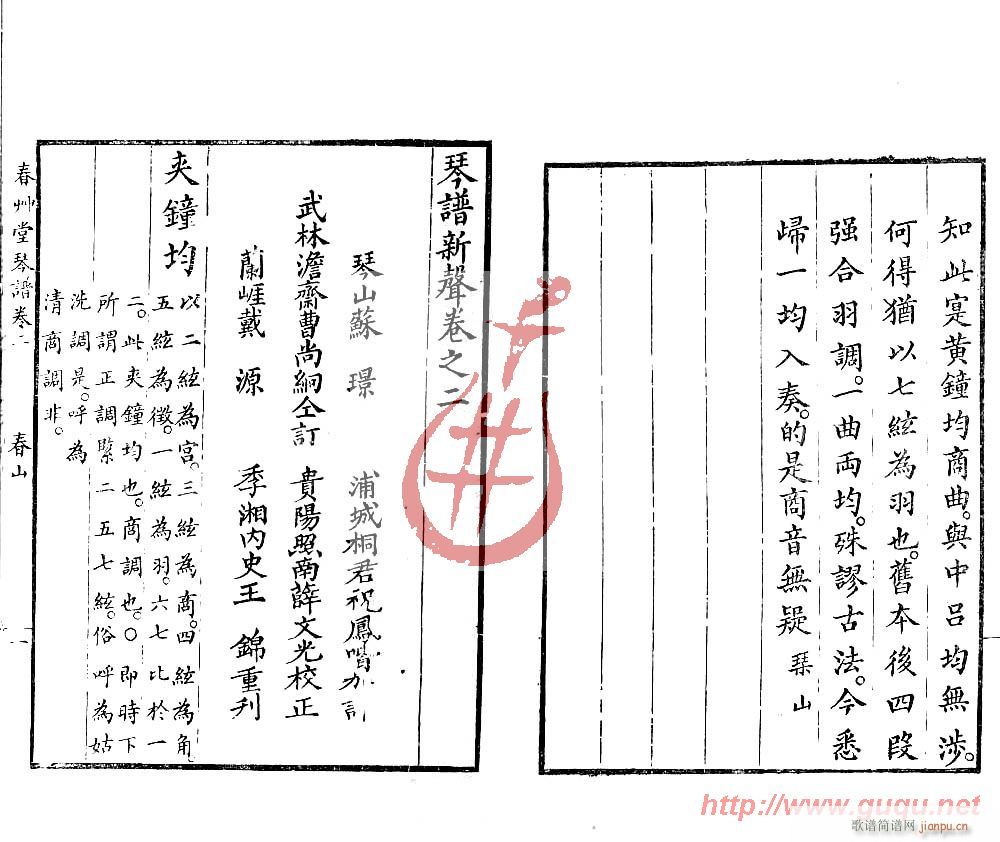 知此寔黃鐘均商曲。與中呂均無涉。
何得猶以七絃為羽也。舊本後四段
强合羽調。一曲両均。殊謬古法。今悉
歸一均入奏。的是商音無疑 琹山
琴譜新聲卷之二
琴山蘇 璟 浦城桐君祝鳳喈
武林澹齋曹尚絅仝訂 貴陽照南薛文光校正
蘭崖戴 源 季湘内史王 錦重刋
夾鐘均
以二絃為宮。三絃為商。四絃為角。
五絃為徵。一絃為羽。六七比於一
二。此夾鐘均也。商調也。○即時下
所謂正調緊二五七絃。俗呼為姑
洗調是。呼為
清商調非。
春艸堂琴譜卷二
春山
http://www.guqu.net
歌谱简谱网
jianpu.cn